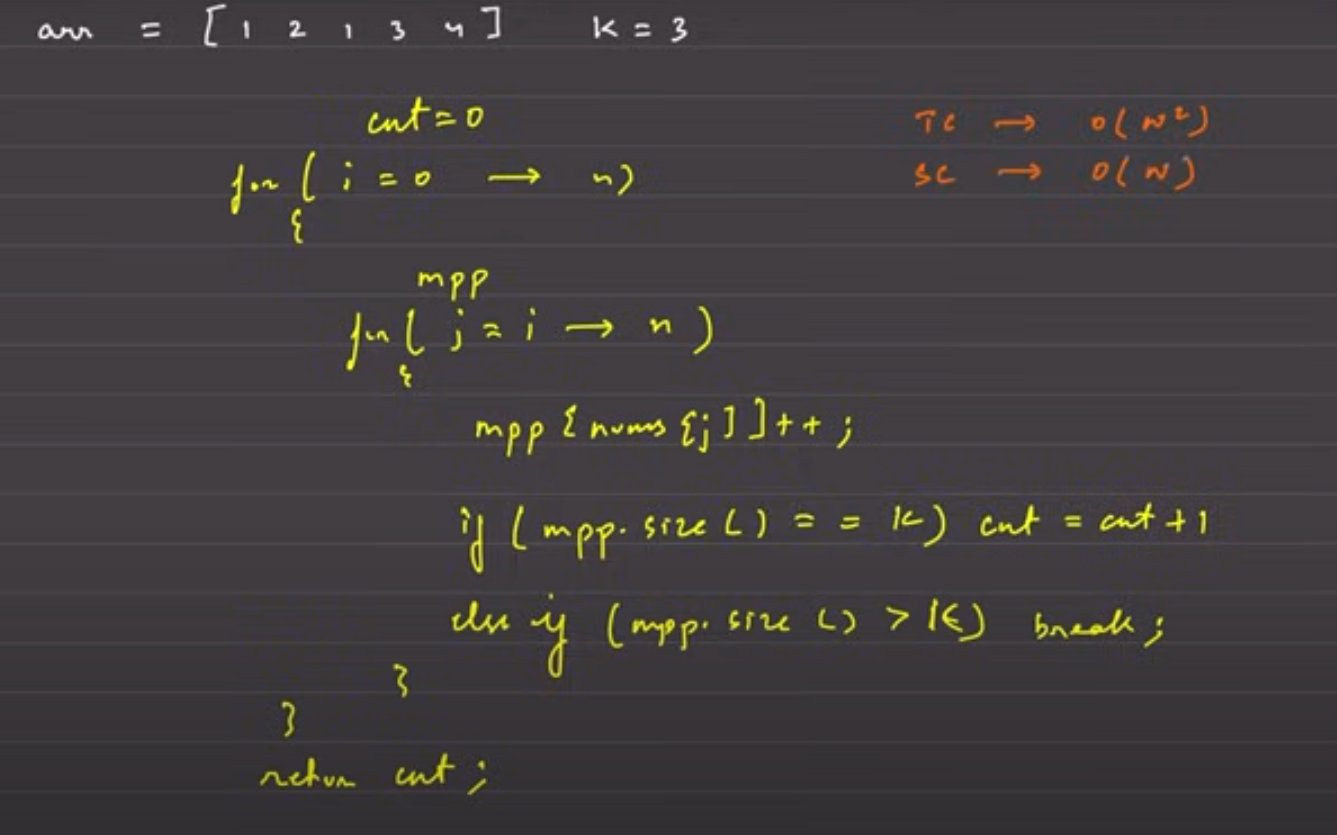 arr = [ 1 2 1 3 4 ] K = 3
cnt = 0
TC → O(N²)
for ( i = 0 → n)
SC → O(N)
{
mpp
for ( j = i → n )
{
mpp [ nums [j] ] ++ ;
if ( mpp. size () = = K) cnt = cnt + 1
else if (mpp. size () > K) break ;
}
}
return cnt ;